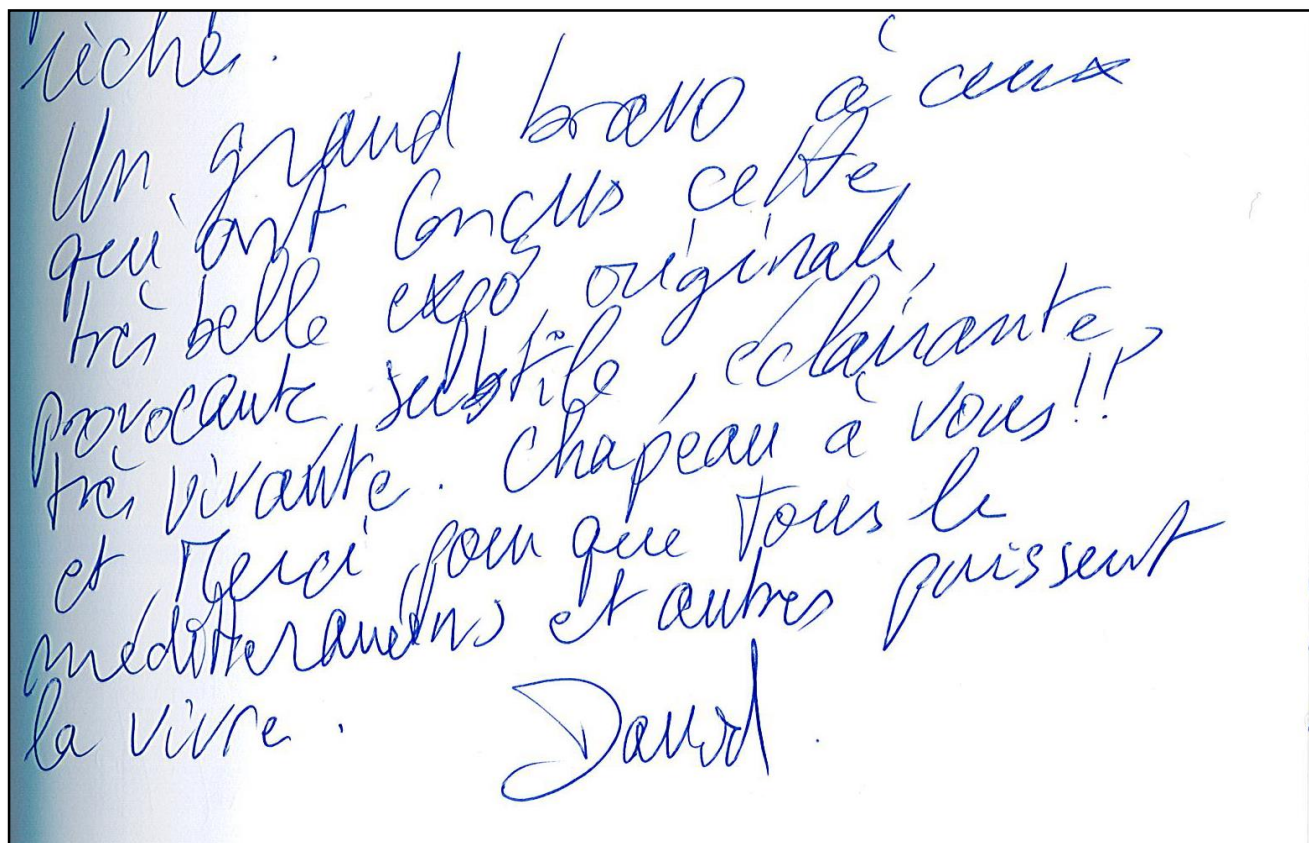 riche.
Un grand bravo à ceux
qui ont conçus cette
très belle expo originale,
provocante, subtile, éclairante,
très vivante. Chapeau à vous!!
et Merci pour que tous le
méditterranéens et autres puissent
la vivre.
David.